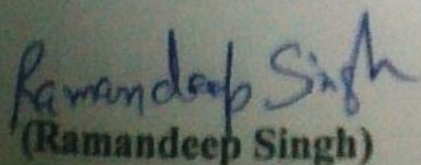 Ramandeep Singh
(Ramandeep Singh)